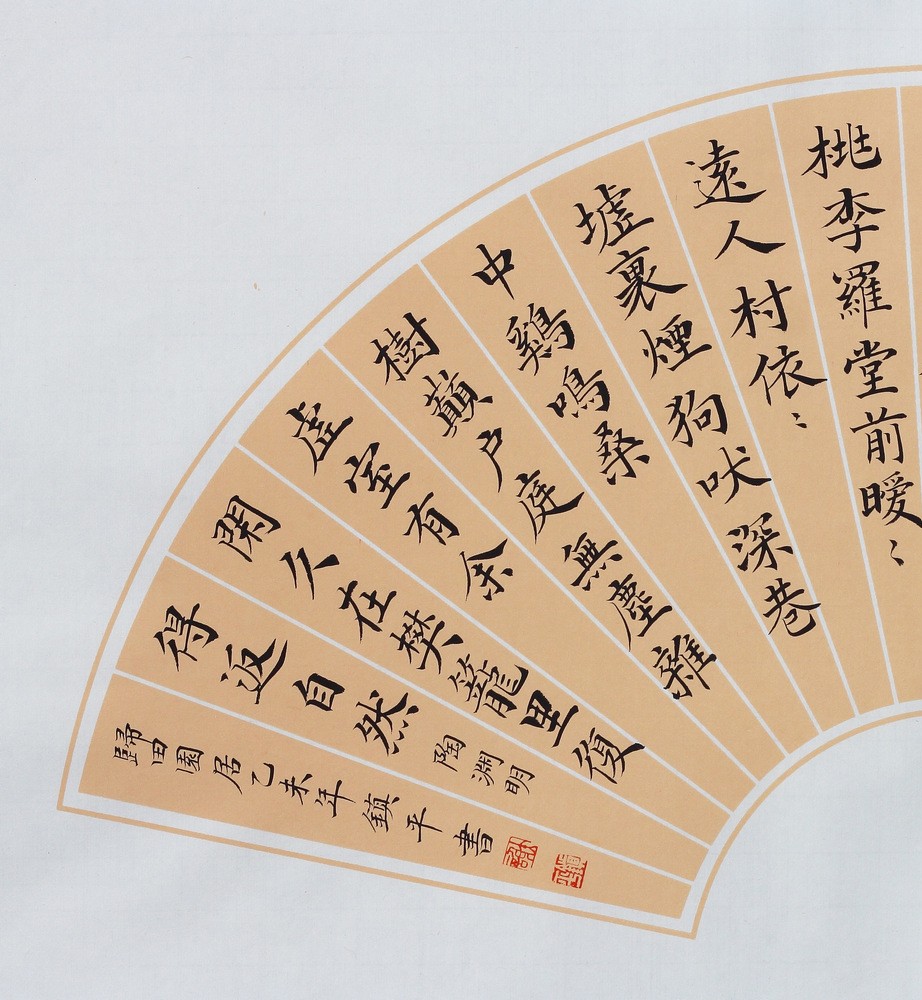 桃李羅堂前曖〻
遠人村依〻
墟裏煙狗吠深巷
中鷄鳴桑
樹巔户庭無塵雜
虚室有余
閑久在樊籠里復
得返自然 陶淵明
歸田園居乙未年鎮平書